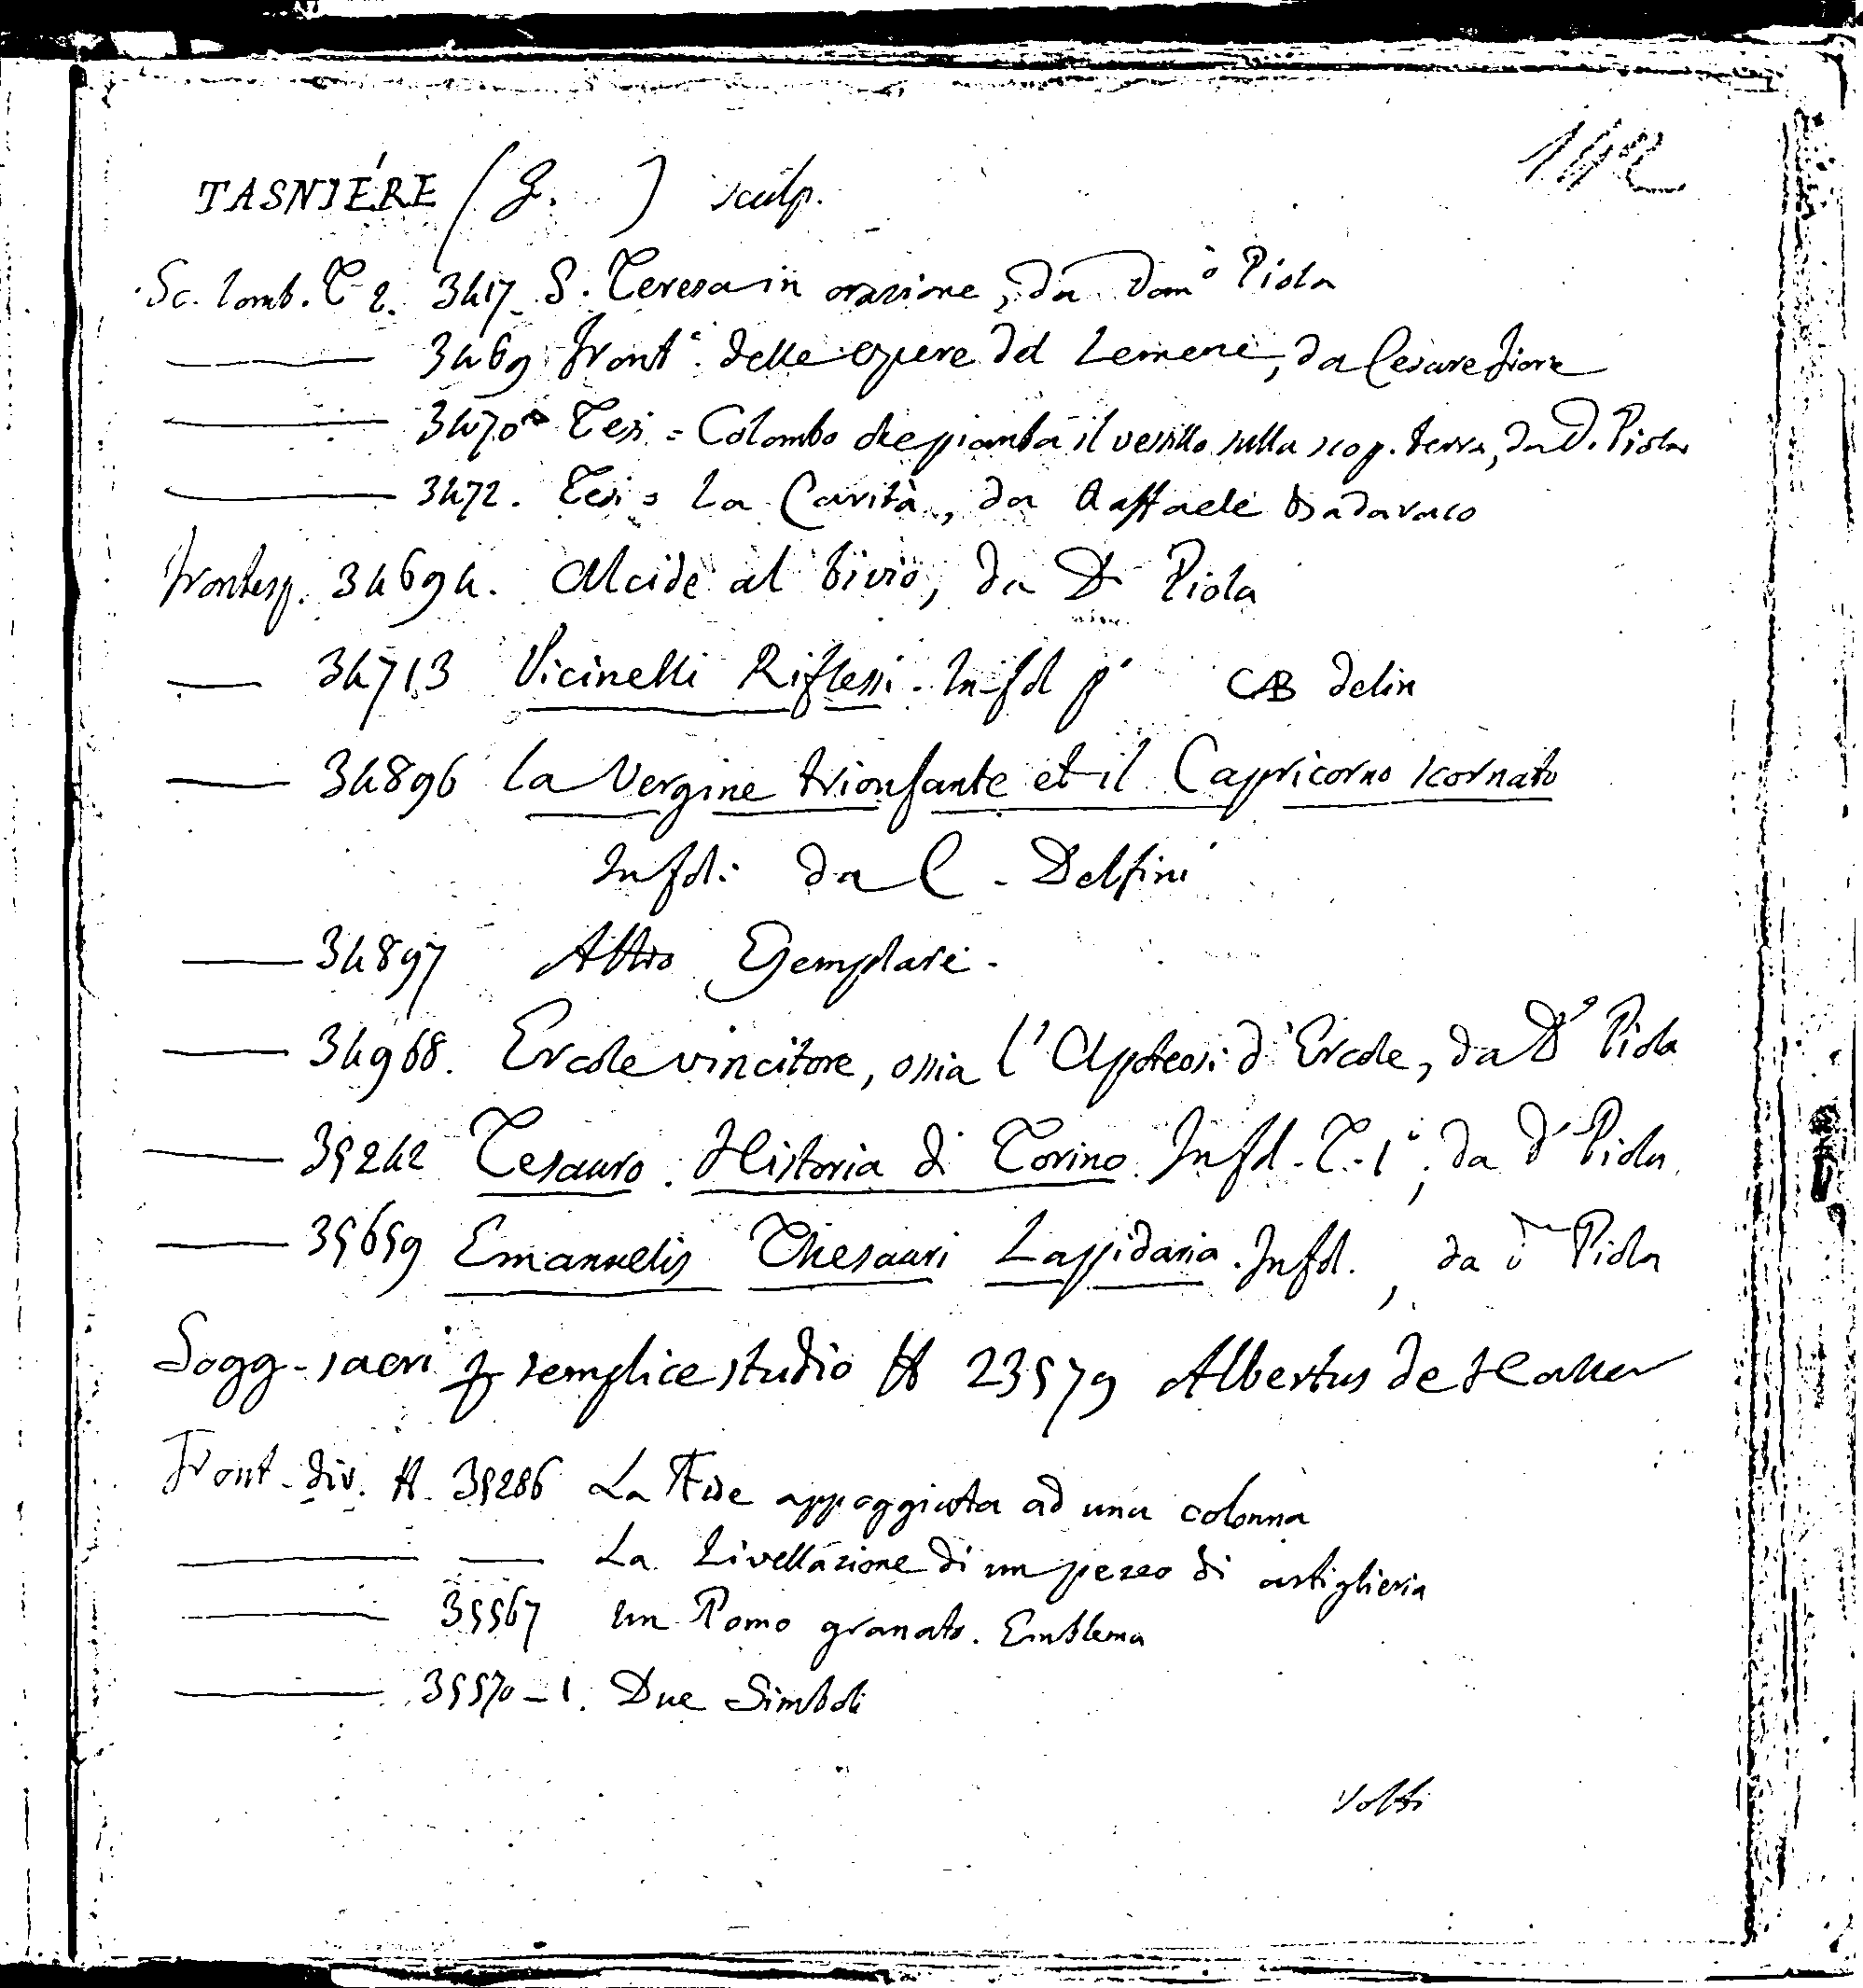 142
TASNIÈRE (G. ) sculp.
Sc. lomb. T 2. 3417 S. Teresa in orazione, da Domº Piola
3469 Frontº. delle opere del Lemene, da Cesare Fiore
3470 Tesi = Colombo che pianta il vessillo sulla scop. terra, da D. Piola
3472. Tesi = La Carità, da Raffaele Badaraco
Frontesp. 34694. Alcide al bivio, da Dº Piola
34713 Vicinelli Riflessi. In fol pº CAB delin
34896 La Vergine trionfante et il Capricorno scornato
In fol: da C. Delfini
34897 Altro Esemplare.
34968. Ercole vincitore, ossia l'Apoteosi d'Ercole, da Dº Piola
35242 Tesauro. Historia di Torino. In fol. T. 1º, da Dº Piola
35659 Emanuelis Thesauri Lapidaria. In fol., da Dº Piola
Sogg. sacri p semplice studio A 23579 Albertus de
Front. div. A. 35286 La Fede appoggiata ad una colonna
La Livellazione di un pezzo di artiglieria
35567 un Pomo granato. Emblema
35570-1. Due Simboli
Volti